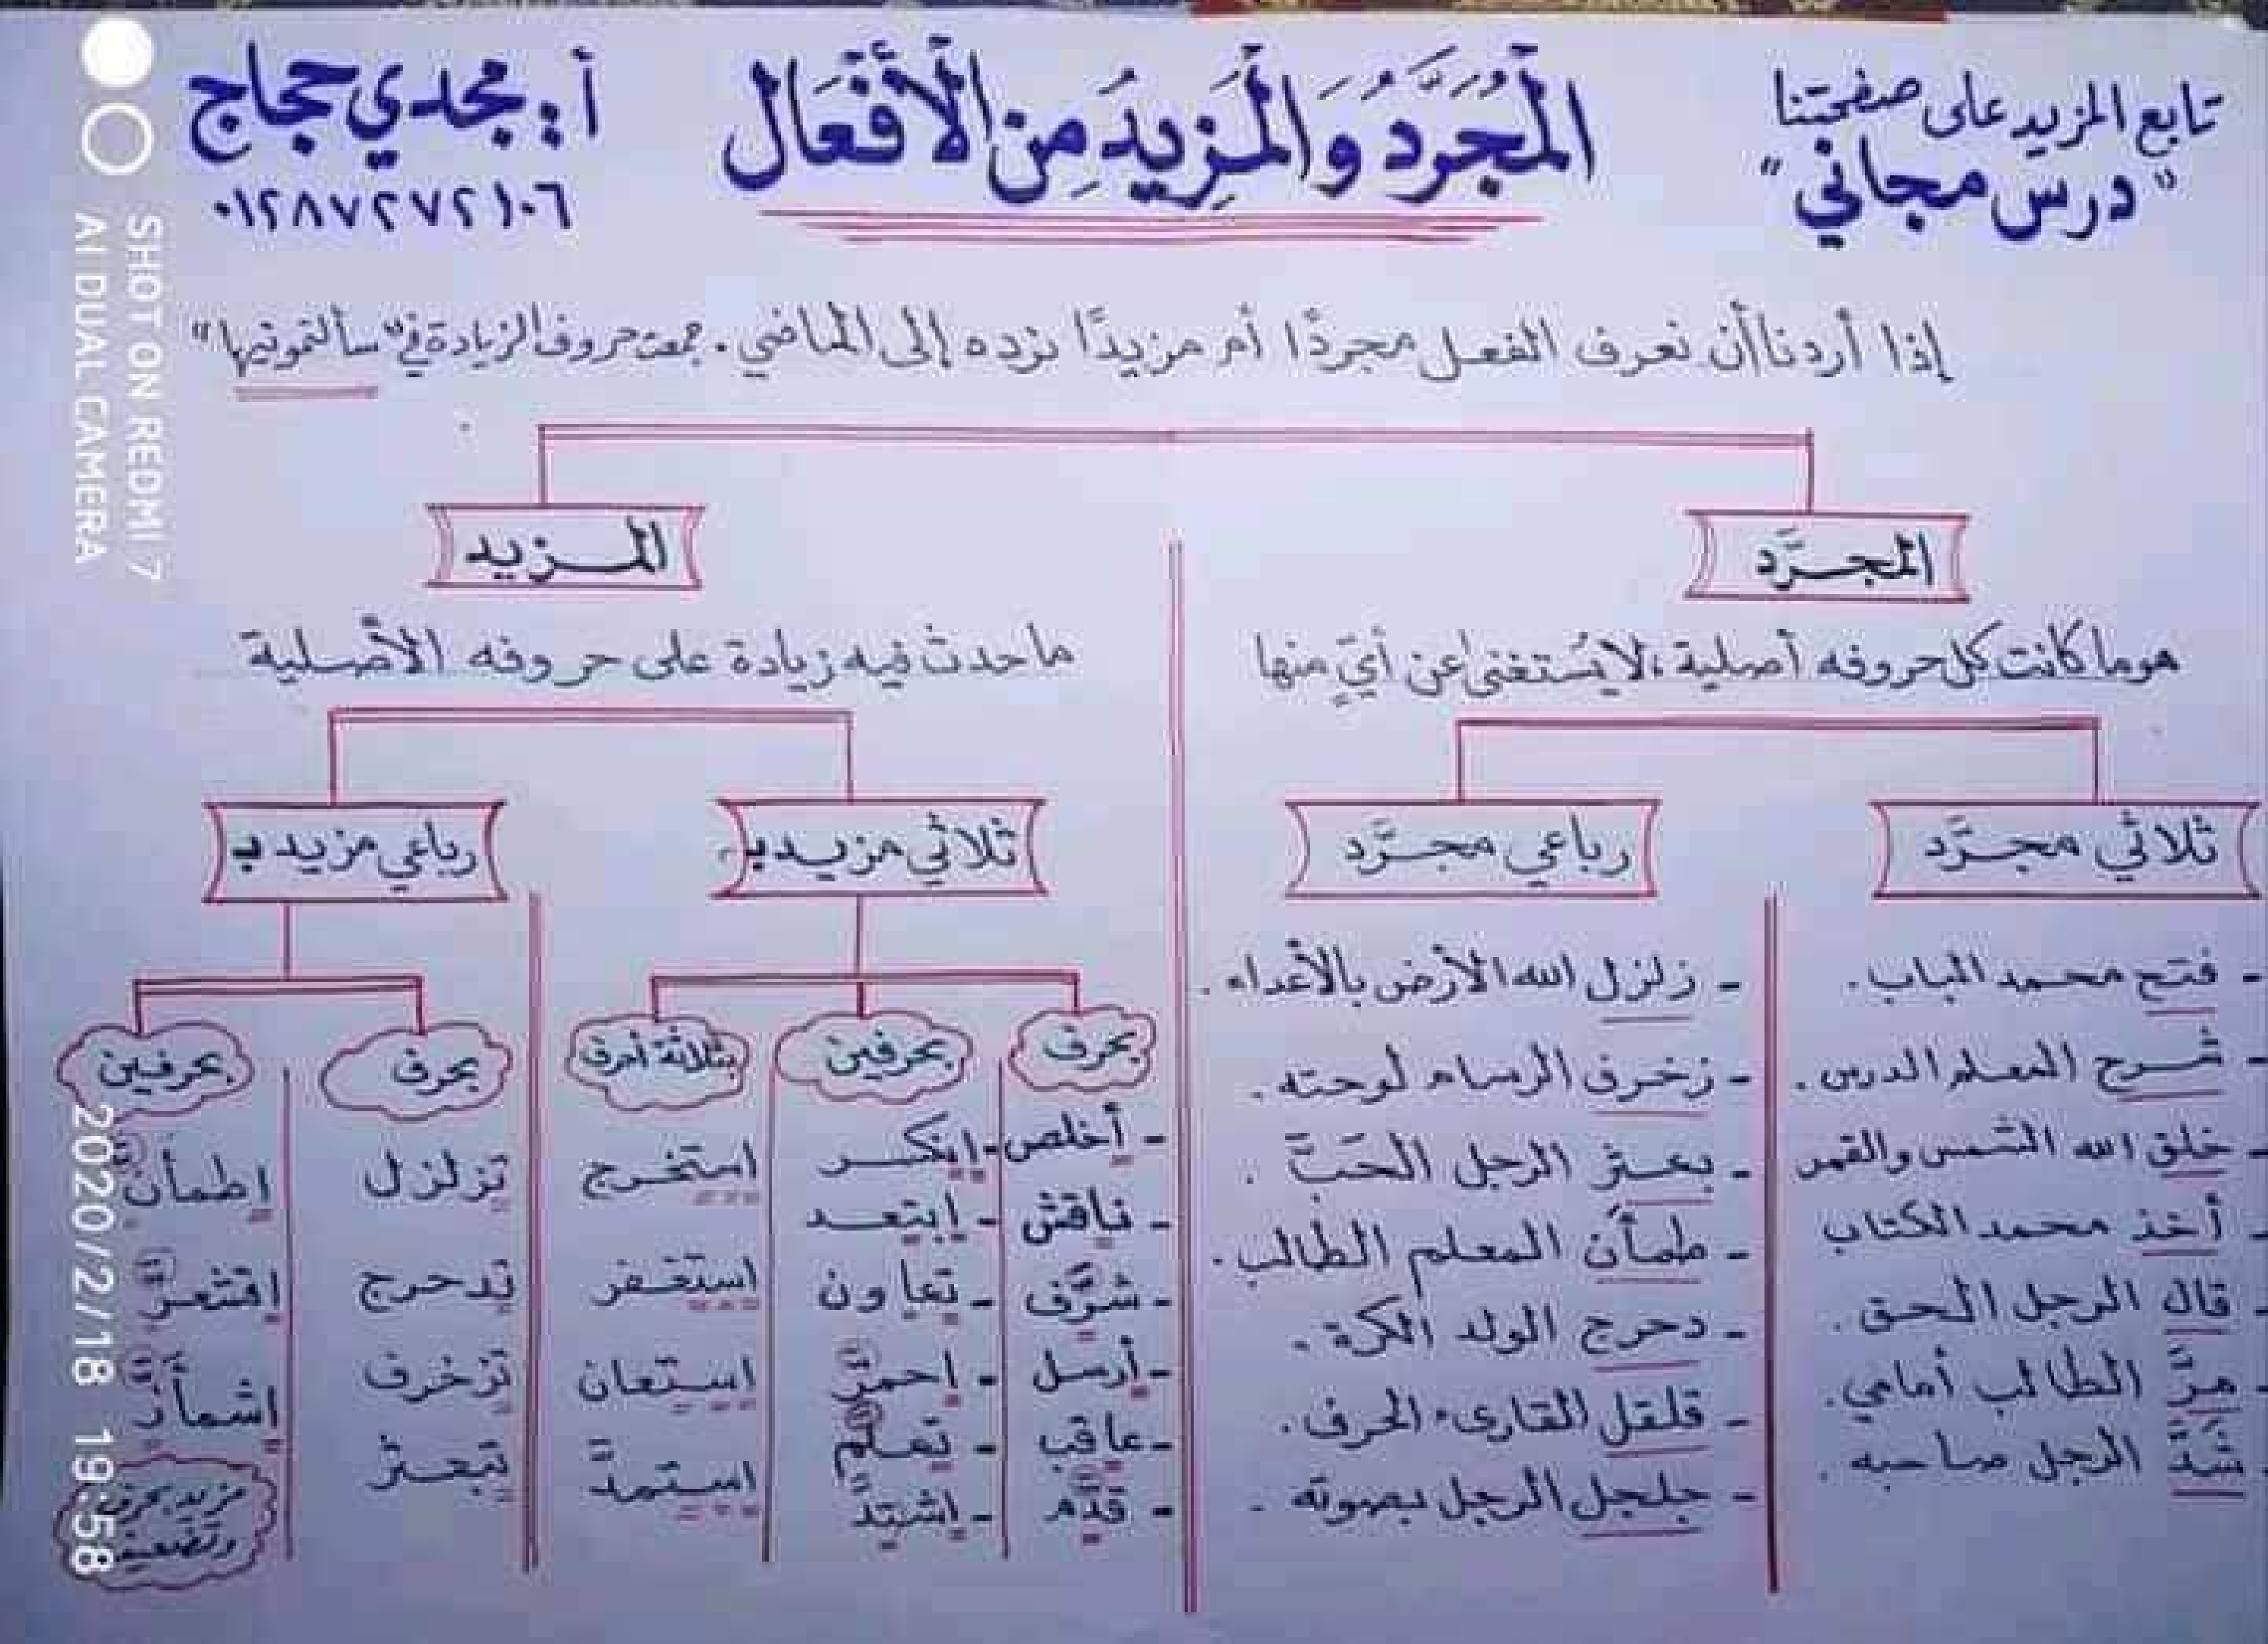 تابع المزيد على صفحتنا
"درس مجاني"
المُجَرَّدُ وَالمَزِيدُ مِنَ الْأَفْعَال
أ: مجدي حجاج
٠١٢٨٧٢٧٢١٠٦
إذا أردنا أن نعرف الفعل مجردًا أم مزيدًا نرده إلى الماضي. جمعت حروف الزيادة في "سألتمونيها"
المجرَّد
هو ما كانت كل حروفه أصلية، لا يُستغنى عن أيٍّ منها
ثلاثي مجرَّد
- فتح محمد الباب.
- شرح المعلم الدرس.
- خلق الله الشمس والقمر
- أخذ محمد الكتاب
- قال الرجل الحق.
- مرَّ الطالب أمامي.
- شَدَّ الرجل صاحبه.
رباعي مجرَّد
- زلزل الله الأرض بالأعداء.
- زخرف الرسام لوحته.
- بعثر الرجل الحَبَّ.
- طمأن المعلم الطالب.
- دحرج الولد الكرة.
- قلقل القارىء الحرف.
- جلجل الرجل بصوته.
المزيد
ما حدث فيه زيادة على حروفه الأصلية
ثلاثي مزيد بـ
بحرف
- أخلص
- ناقش
- شرَّف
- أرسل
- عاقب
- قدَّم
بحرفين
- انكسر
- ابتعد
- تعاون
- احمرَّ
- تعلَّم
- اشتدَّ
بثلاثة أحرف
استخرج
استغفر
استعان
استمدَّ
رباعي مزيد بـ
بحرف
تزلزل
تدحرج
تزخرف
تبعثر
بحرفين
اطمأنَّ
اقشعرَّ
اشمأزَّ
مزيد بحرف
وتضعيف
SHOT ON REDMI 7
AI DUAL CAMERA
2020/2/18 19:58